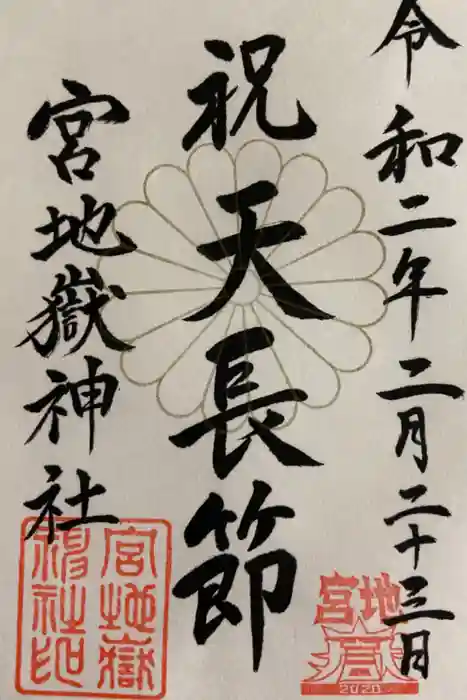 令和二年二月二十三日
祝天長節
宮地嶽神社
宮地嶽
神社印
宮地
嶽
2020